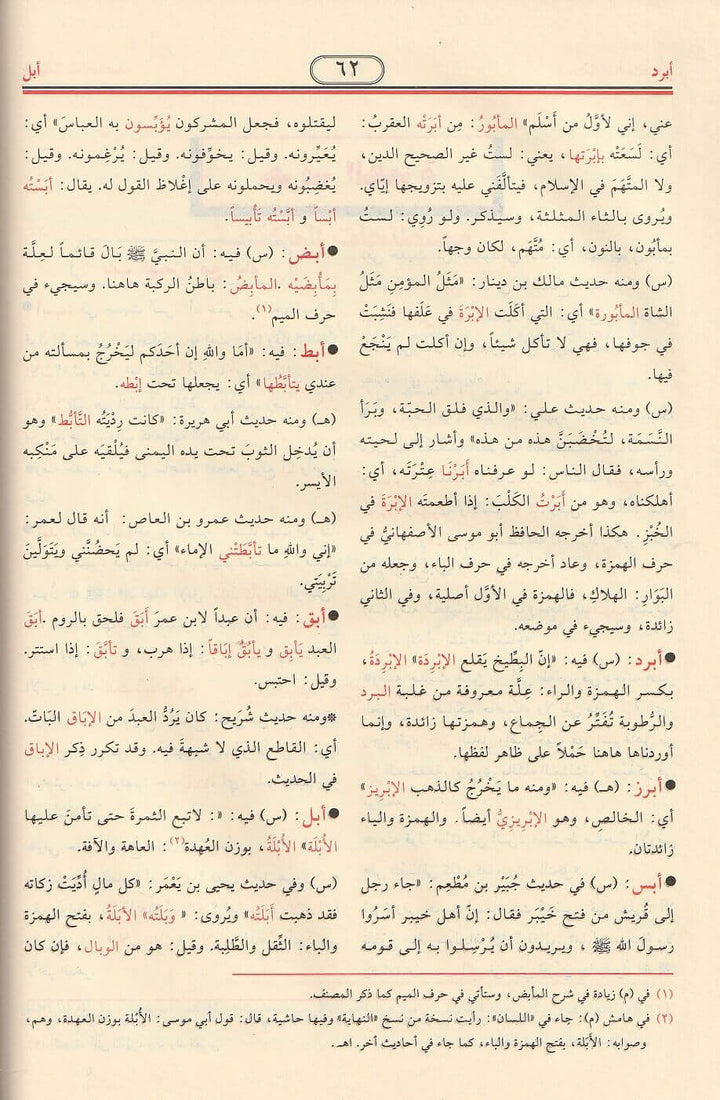 أبرد
٦٢
أبل
عني، إني لأوَّلُ من أَسْلَم» المأبُورُ: مِن أبَرَتْه العقربُ:
أي: لَسَعَتْه بإبْرَتها، يعني: لستُ غير الصحيح الدين،
ولا المتَّهَم في الإسلام، فيتألَّفَني عليه بتزويجها إيّاي.
ويُروى بالثاء المثلثة، وسيذكر. ولو رُوِي: لستُ
بمأبُون، بالنون، أي: مُتَّهَم، لكان وجهاً.
(س) ومنه حديث مالك بن دينار: «مَثَلُ المؤمِن مَثَلُ
الشاة المأبُورة» أي: التي أكَلَت الإبْرَةَ في عَلَفها فنَشِبَتْ
في جوفها، فهي لا تأكل شيئاً، وإن أكلت لم يَنْجَعْ
فيها.
(س) ومنه حديث علي: «والذي فلق الحبّة، وبَرَأ
النَّسَمَة، لتُخْضَبَنَّ هذه من هذه» وأشار إلى لحيته
ورأسه، فقال الناس: لو عرفناه أبَرْنَا عِتْرَتَه، أي:
أهلكناه، وهو من أَبَرْتُ الكَلْبَ: إذا أطعمتَه الإبْرَةَ في
الخُبْزِ. هكذا أخرجه الحافظ أبو موسى الأصفهانيُّ في
حرف الهمزة، وعاد أخرجه في حرف الباء، وجعله من
البَوَارِ: الهلاكِ، فالهمزة في الأوَّل أصلية، وفي الثاني
زائدة، وسيجيء في موضعه.
●أبرد: (س) فيه: «إنّ البِطِّيخ يَقلع الإبْرِدَة» الإبْرِدَةُ،
بكسر الهمزة والراء: عِلَّة معروفة من غلبة البرد
والرُّطوبة تُفَتِّرُ عن الجِماع، وهمزتها زائدة، وإنما
أوردناها هاهنا حَمْلاً على ظاهر لفظها.
●أبرز: (هـ) فيه: «ومنه ما يَخْرُجُ كالذهب الإبْرِيز»
أي: الخالصِ، وهو الإبْرِيزِيُّ أيضاً. والهمزة والياء
زائدتان.
●أبس: (س) في حديث جُبَيْر بن مُطْعِم: «جاء رجل
إلى قُريش من فتح خَيْبَر فقال: إن أهل خيبر أسَرُوا
رسولَ الله ﷺ ، ويريدون أن يُرْسِلوا به إلى قومه
ليقتلوه، فجعل المشركون يُؤَبِّسون به العباسَ» أي:
يُعَيِّرونه. وقيل: يخوِّفونه. وقيل: يُرْغِمونه. وقيل:
يُغضِبُونه ويحملونه على إغْلاظ القول له. يقال: أبَسْتُه
أبْساً و أبَّسْتُه تَأْبِيساً.
●أبض: (س) فيه: أن النبيَّ ﷺ بَالَ قائماً لعِلَّة
بِمَأبِضَيْه .المأبِضُ: باطنُ الركبة هاهنا. وسيجيء في
حرف الميم(١).
●أبط: فيه: «أمَا واللهِ إن أحَدَكم ليَخْرُجُ بمسألته من
عندي يتأبَّطُها» أي: يجعلها تحت إبْطه.
(هـ) ومنه حديث أبي هريرة: «كانت رِدْيَتُه التَّأبُّط» وهو
أن يُدخِل الثوبَ تحت يده اليمنى فيُلْقيَه على مَنْكِبه
الأيسر.
(هـ) ومنه حديث عمرو بن العاص: أنه قال لعمر:
«إني واللهِ ما تأبَّطَتْني الإماء» أي: لم يَحضُنَّني ويَتَوَلَّينَ
تَرْبِيَتِي.
●أبق: فيه: أن عبداً لابن عمرَ أَبَقَ فلحق بالروم .أبَقَ
العبد يَأبِق و يأبُقُ إبَاقاً: إذا هرب، و تأبَّقَ: إذا استتر.
وقيل: احتبس.
※ومنه حديث شُرَيح: كان يَرُدُّ العبدَ من الإبَاق البَاتِّ.
أي: القاطع الذي لا شبهةَ فيه. وقد تكرر ذِكر الإباق
في الحديث.
●أبل: (س) فيه: «: لاتبع الثمرةَ حتى تأمنَ عليها
الأُبْلَة» الأُبْلَةُ، بوزن العُهدة(٢): العاهة والآفة.
(س) وفي حديث يحيى بن يَعْمَر: «كل مالٍ أُدِّيَتْ زكاته
فقد ذهبت أَبَلَتُه» ويُروى: « وَبَلَتُه» الأبَلَةُ، بفتح الهمزة
والباء: الثِّقل والطَّلِبة. وقيل: هو من الوبال، فإن كان
(١) في (م) زيادة في شرح المأبض، وستأتي في حرف الميم كما ذكر المصنف.
(٢) في هامش (م): جاء في «اللسان»: رأيت نسخة من نسخ «النهاية» وفيها حاشية، قال: قول أبي موسى: الأُبْلة بوزن العهدة، وهم،
وصوابه: الأَبَلة، بفتح الهمزة والباء، كما جاء في أحاديث أخر. اهـ.